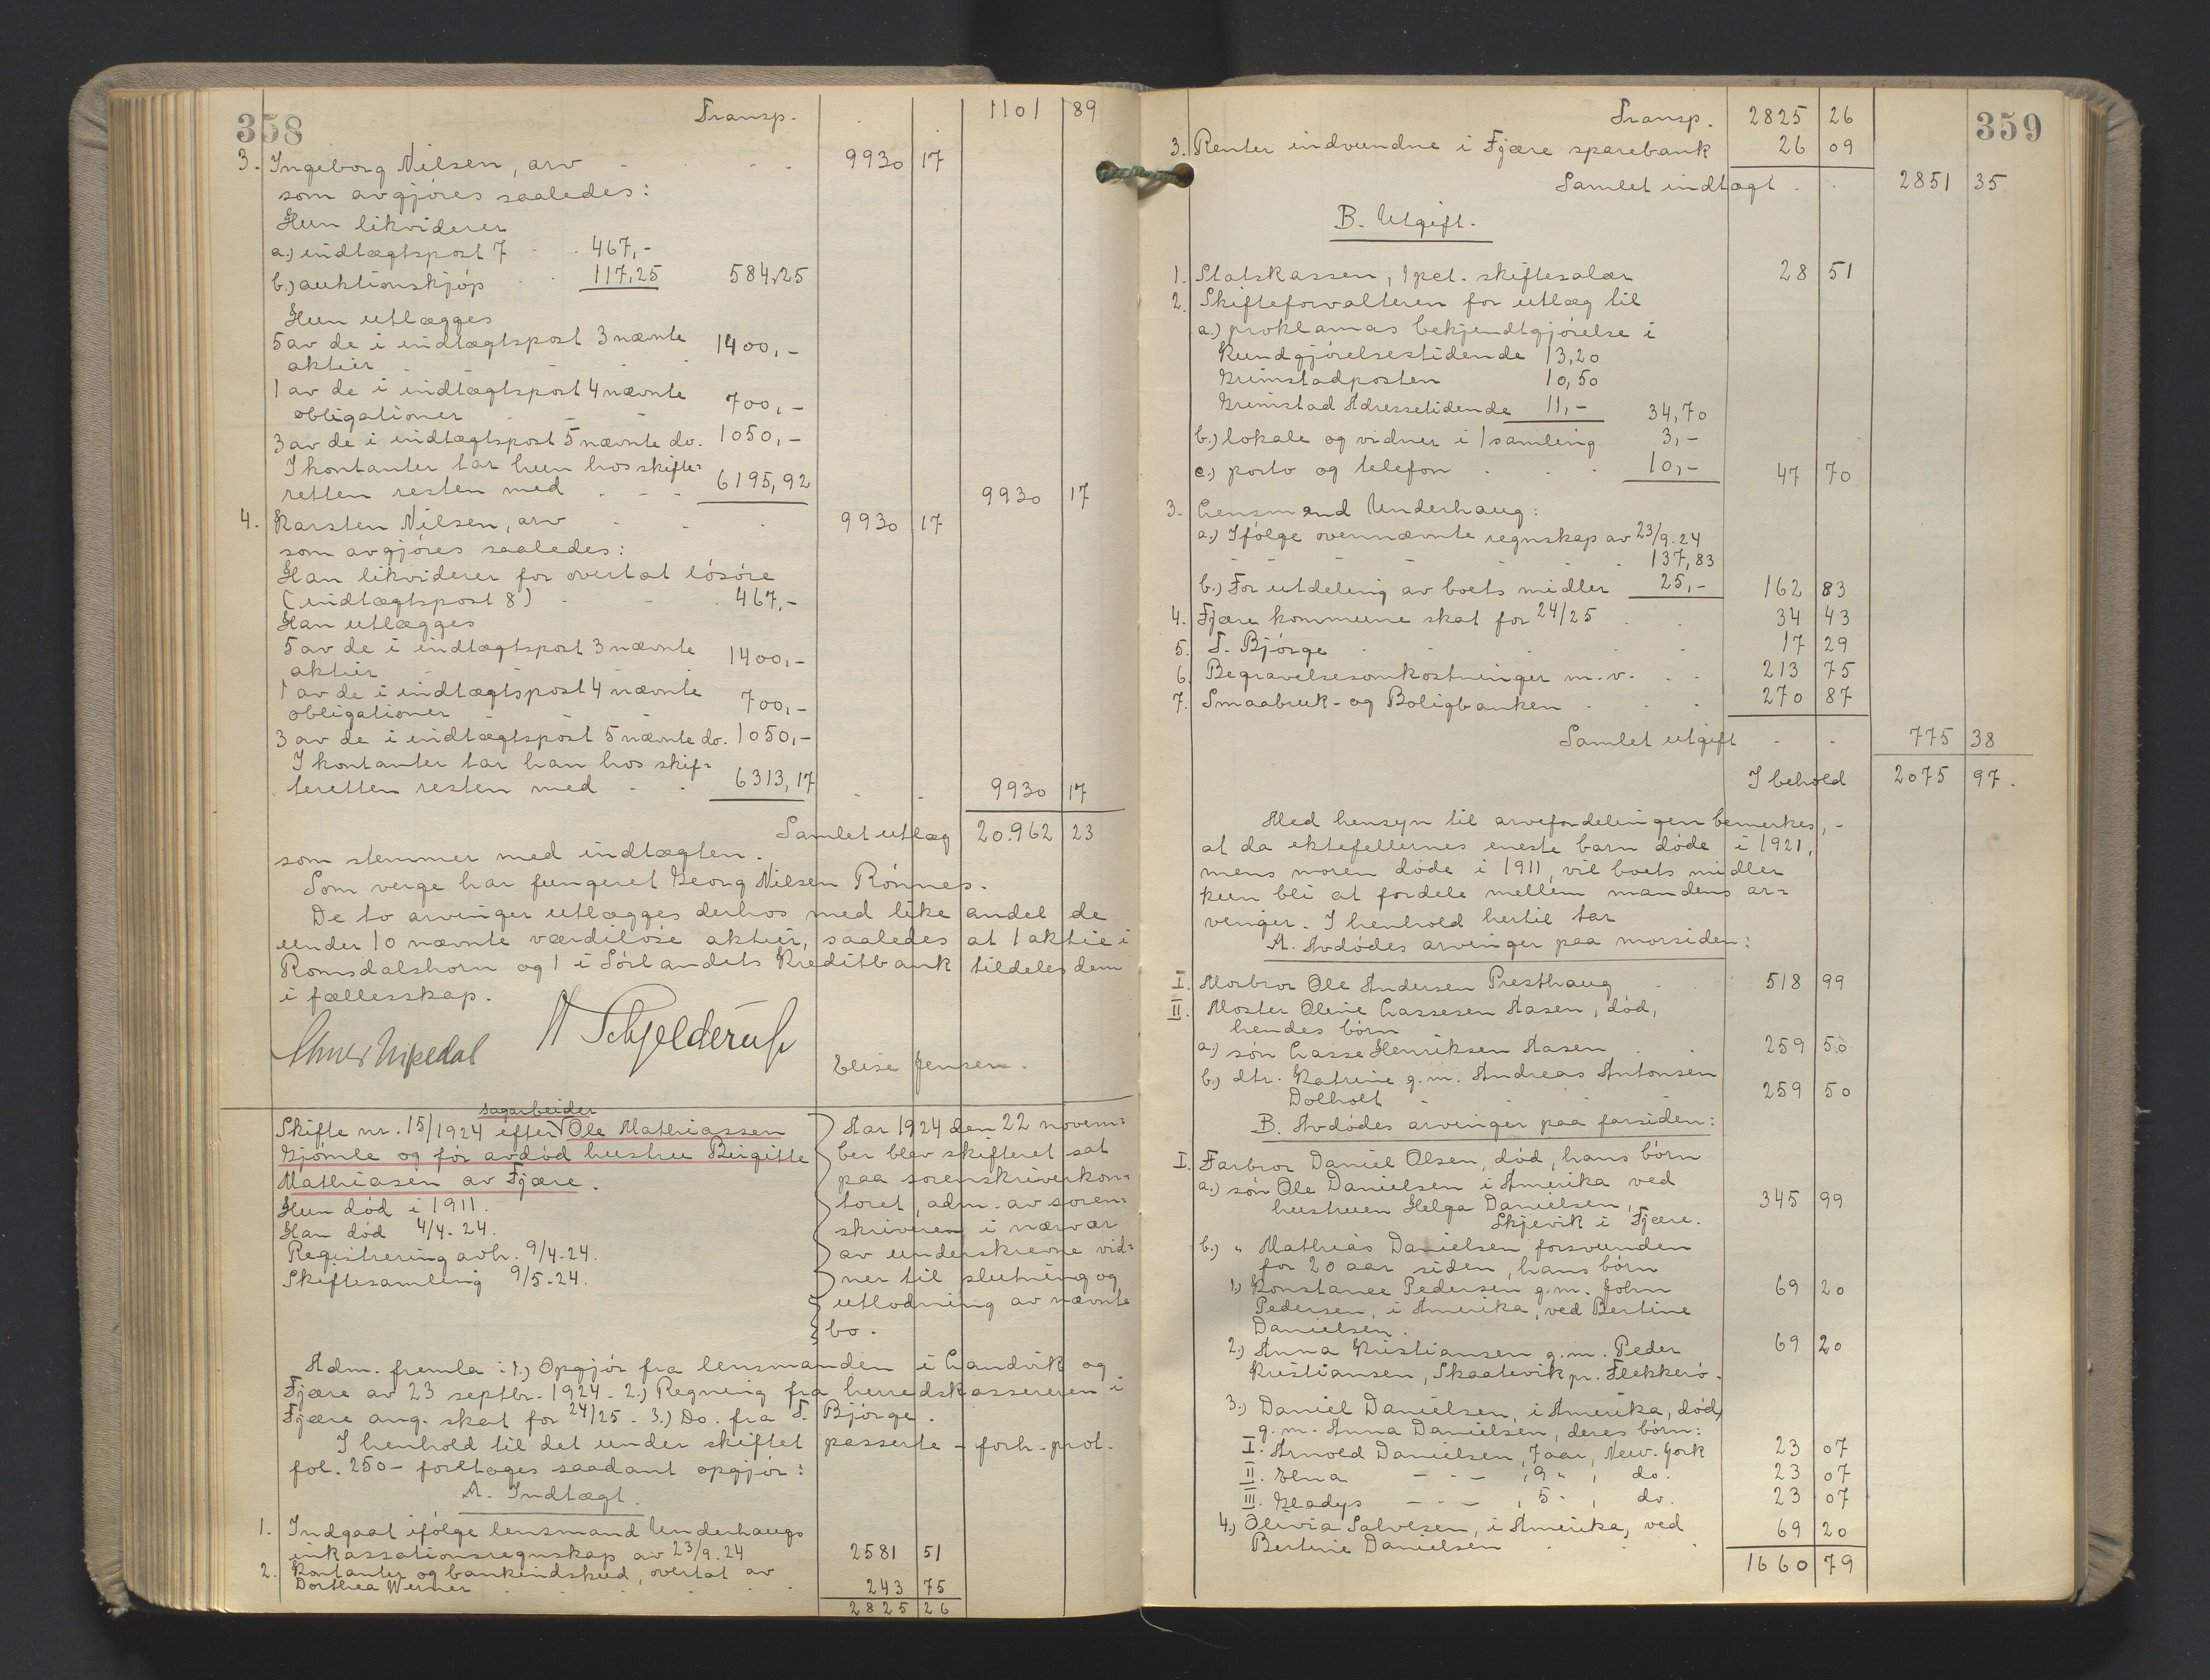 358
Transp. 1101 89
3. Ingeborg Nilsen, arv - - - 9930 17
som avgjøres saaledes:
Hun likviderer
a.) indtægtspost 7 - - 467,-
b.) auktionskjøp - - 117,25 584,25
Hun utlægges
5 av de i indtægtspost 3 nævnte
aktier - - - 1400,-
1 av de i indtægtspost 4 nævnte
obligationer - - - 700,-
3 av de i indtægtspost 5 nævnte do. 1050,-
I kontanter tar hun hos skifte=
retten resten med - - - 6195,92 9930 17
4. Karsten Nilsen, arv - - - 9930 17
som avgjøres saaledes:
Han likviderer for overtat løsøre
(indtægtspost 8) - - - 467,-
Han utlægges
5 av de i indtægtspost 3 nævnte
aktier - - - 1400,-
1 av de i indtægtspost 4 nævnte
obligationer - - - 700,-
3 av de i indtægtspost 5 nævnte do. 1050,-
I kontanter tar han hos skif=
teretten resten med - - 6313,17 - - 9930 17
Samlet utlæg 20.962 23
som stemmer med indtægten.
Som verge har fungeret Georg Nilsen Rønnes.
De to arvinger utlægges derhos med like andel de
under 10 nævnte værdiløse aktier, saaledes at 1 aktie i
Romsdalshorn og 1 i Sørlandets Kreditbank tildeles dem
i fællesskap.
Schjelderup
Elise Jensen.
sagarbeider
Skifte nr. 15/1924 efter Ole Mathiassen
Gjømle og før avdød hustru Birgitte
Mathiasen av Fjære.
Hun død i 1911.
Han død 4/4-24.
Registrering avh. 9/4-24.
Skiftesamling 9/5-24.
Aar 1924 den 22 novem=
ber blev skifteret sat
paa sorenskriverkon=
toret, adm. av soren=
skriveren i nærvær
av underskrevne vid=
ner til slutning og
utlodning av nævnte
bo.
Adm. fremla: 1.) Opgjør fra lensmanden i Landvik og
Fjære av 23 septbr. 1924. 2.) Regning fra herredskassereren i
Fjære ang. skat for 24/25. 3.) Do. fra T. Bjørge.
I henhold til det under skiftet passerte - forh.prot.
fol. 250 - foretages saadant opgjør:
A. Indtægt.
1. Indgaat ifølge lensmand Underhaugs
inkassationsregnskap av 23/9.24 2581 51
2. Kontanter og bankindskud, overtat av
Dorthea Werner - - - 243 75
2825 26
359
Transp. 2825 26
3. Renter indvundne i Fjære sparebank 26 09
Samlet indtægt - - 2851 35
B. Utgift.
1. Statskassen, 1 pct. skiftesalær 28 51
2. Skifteforvalteren for utlæg til
a.) proklamas bekjendtgjørelse i
Kundgjørelsestidende 13,20
Grimstadposten 10,50
Grimstad Adressetidende 11,- 34,70
b.) lokale og vidner i 1 samling 3,-
c.) porto og telefon - - - 10,- 47 70
3. Lensmand Underhaug:
a.) Ifølge ovennævnte regnskap av 23/9.24
- - - - - 137,83
b.) For utdeling av boets midler 25,- 162 83
4. Fjære kommune skat for 24/25 - - 34 43
5. T. Bjørge - - - - 17 29
6. Begravelsesomkostninger m.v. - - 213 75
7. Smaabruk- og Boligbanken - - - 270 87
Samlet utgift - - 775 38
I behold 2075 97.
Med hensyn til arvefordelingen bemerkes, -
at da ektefellernes eneste barn døde i 1921,
mens moren døde i 1911, vil boets midler
kun bli at fordele mellem mandens ar=
vinger. I henhold hertil tar
A. Avdødes arvinger paa morsiden:
I. Morbror Ole Andersen Presthaug - 518 99
II. Moster Oline Lassesen Aasen, død,
hendes børn
a.) søn Lasse Henriksen Aasen - - 259 50
b.) dtr. Katrine g.m. Andreas Antonsen
Dolholt - - - - 259 50
B. Avdødes arvinger paa farsiden:
I. Farbror Daniel Olsen, død, hans børn
a.) søn Ole Danielsen i Amerika ved
hustruen Helga Danielsen, 345 99
Skjevik i Fjære.
b.) " Mathias Danielsen forsvunden
for 20 aar siden, hans børn
1.) Konstance Pedersen g.m. John 69 20
Pedersen, i Amerika, ved Bertine
Danielsen.
2.) Anna Kristiansen g.m. Peder 69 20
Kristiansen, Skaatevik pr. Flekkerø.
3.) Daniel Danielsen, i Amerika, død,
g.m. Anna Danielsen, deres børn:
I. Arnold Danielsen, 7 aar, New. York 23 07
II. Elna - - - , 9 " , do. 23 07
III. Gladys - - - , 5 " , do. 23 07
4.) Olivia Salvesen, i Amerika, ved 69 20
Bertine Danielsen - - -
1660 79